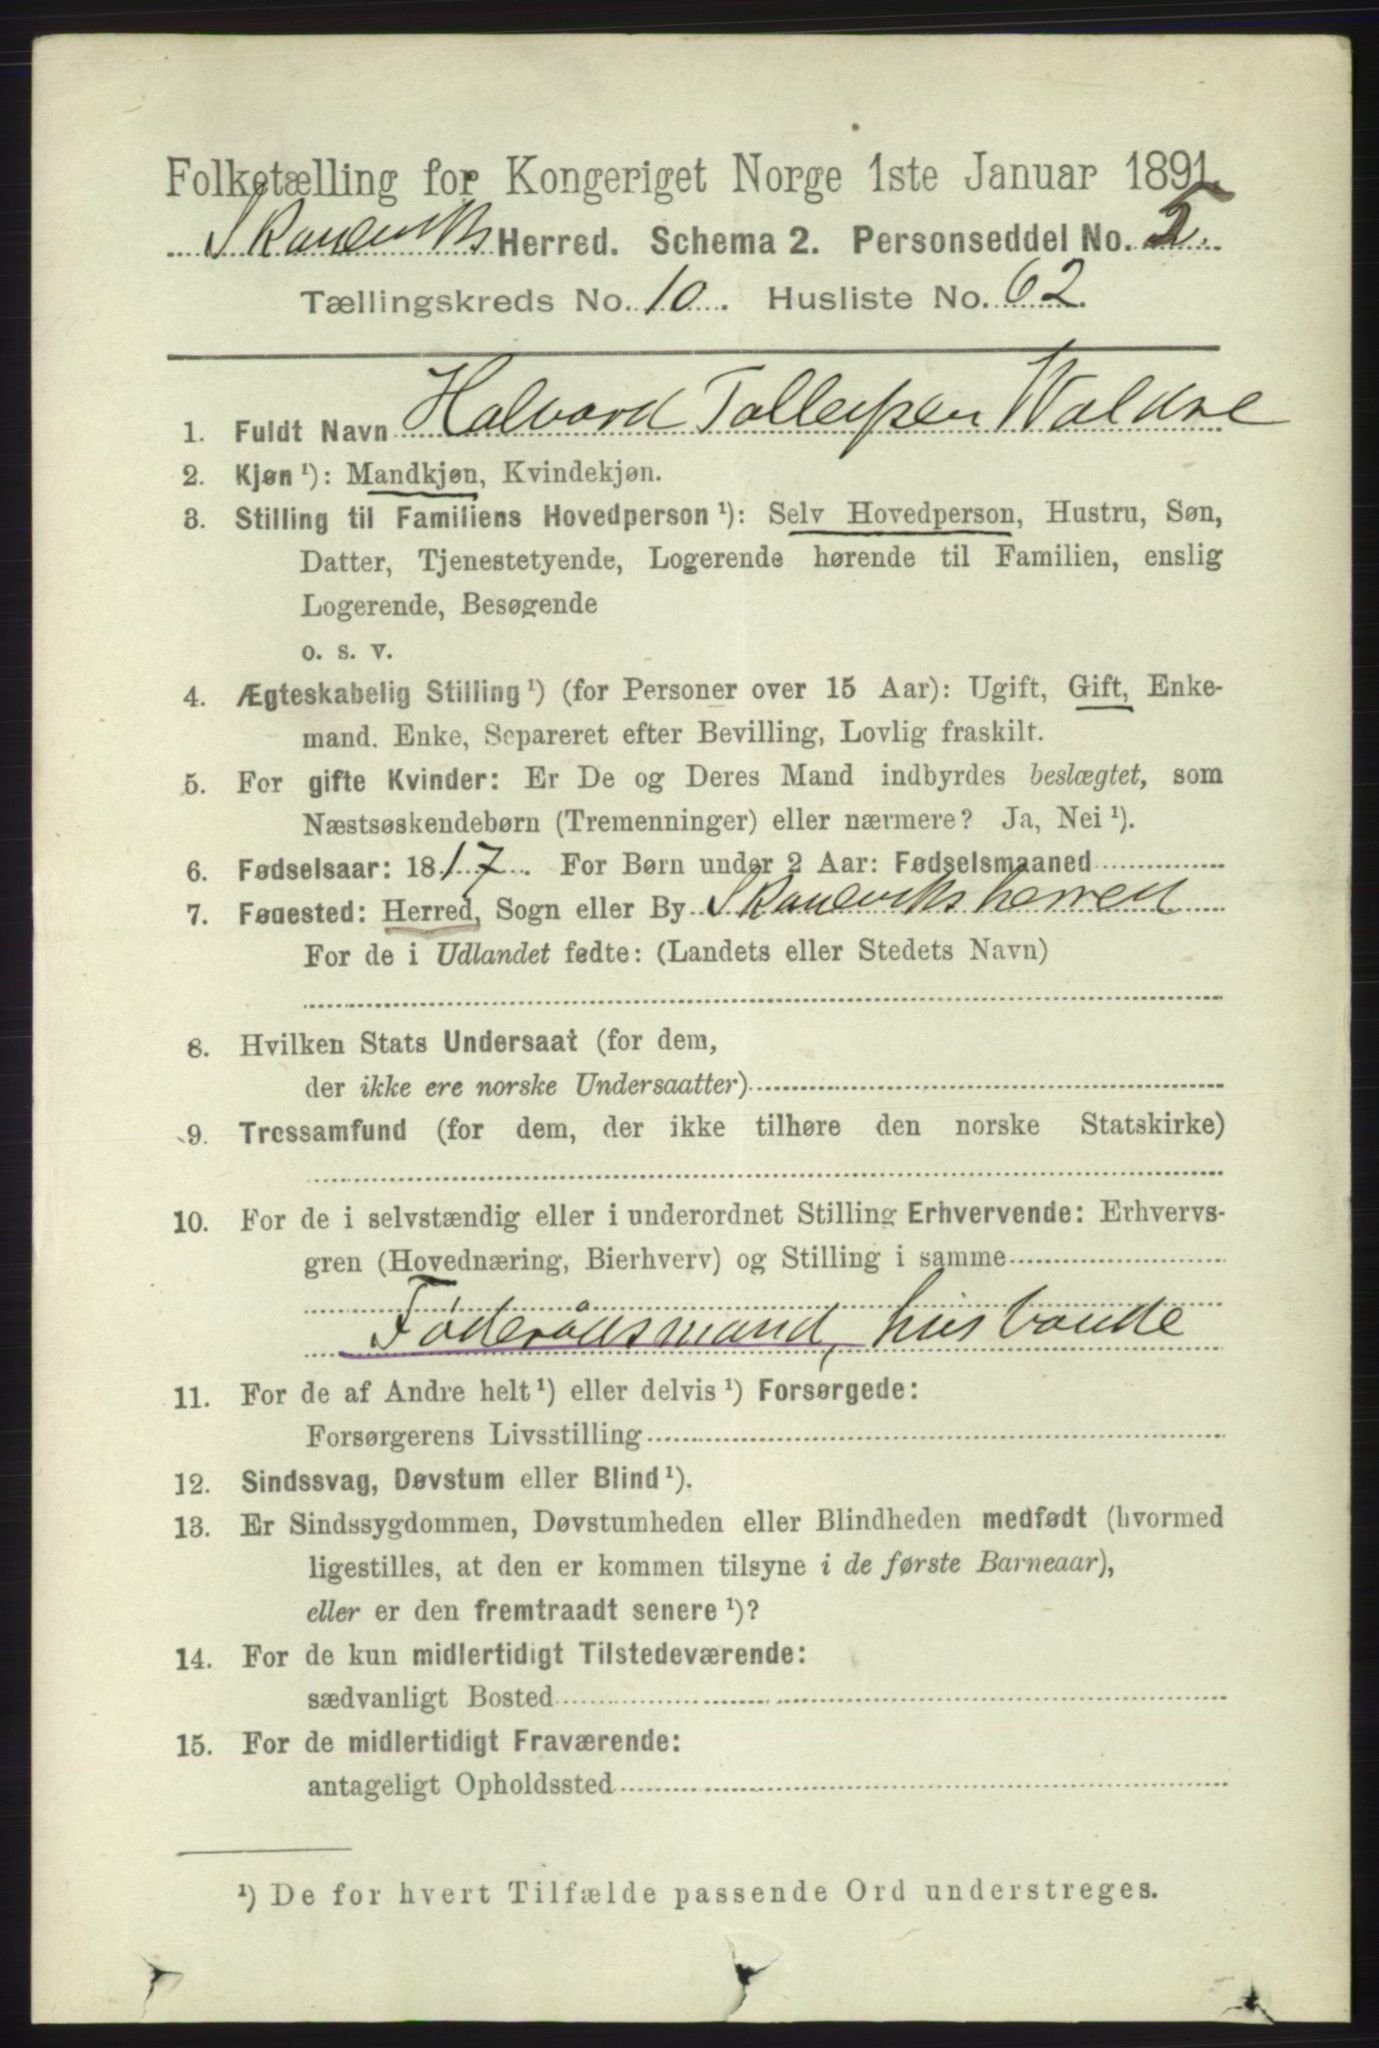 Folketælling for Kongeriget Norge 1ste Januar 1891.
Skaneviks Herred. Schema 2. Personseddel No. 5.
Tællingskreds No. 10. Husliste No. 62.
1. Fuldt Navn Halvord Tollefsen Waldre
2. Kjøn ¹): Mandkjøn, Kvindekjøn.
3. Stilling til Familiens Hovedperson ¹): Selv Hovedperson, Hustru, Søn,
Datter, Tjenestetyende, Logerende hørende til Familien, enslig
Logerende, Besøgende
o. s. v.
4. Ægteskabelig Stilling ¹) (for Personer over 15 Aar): Ugift, Gift, Enke-
mand. Enke, Separeret efter Bevilling, Lovlig fraskilt.
5. For gifte Kvinder: Er De og Deres Mand indbyrdes beslægtet, som
Næstsøskendebørn (Tremenninger) eller nærmere? Ja, Nei ¹).
6. Fødselsaar: 1817. For Børn under 2 Aar: Fødselsmaaned
7. Fødested: Herred, Sogn eller By Skaneviks herred
For de i Udlandet fødte: (Landets eller Stedets Navn)
8. Hvilken Stats Undersaat (for dem,
der ikke ere norske Undersaatter)
9. Trossamfund (for dem, der ikke tilhøre den norske Statskirke)
10. For de i selvstændig eller i underordnet Stilling Erhvervende: Erhvervs-
gren (Hovednæring, Bierhverv) og Stilling i samme
Føderådsmand, husbonde
11. For de af Andre helt ¹) eller delvis ¹) Forsørgede:
Forsørgerens Livsstilling
12. Sindssvag, Døvstum eller Blind ¹).
13. Er Sindssygdommen, Døvstumheden eller Blindheden medfødt (hvormed
ligestilles, at den er kommen tilsyne i de første Barneaar),
eller er den fremtraadt senere ¹)?
14. For de kun midlertidigt Tilstedeværende:
sædvanligt Bosted
15. For de midlertidigt Fraværende:
antageligt Opholdssted
¹) De for hvert Tilfælde passende Ord understreges.